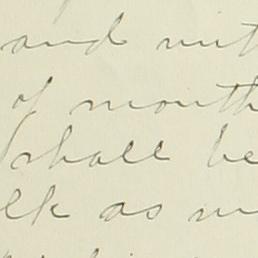 and wit
of month
shall be
lk as m